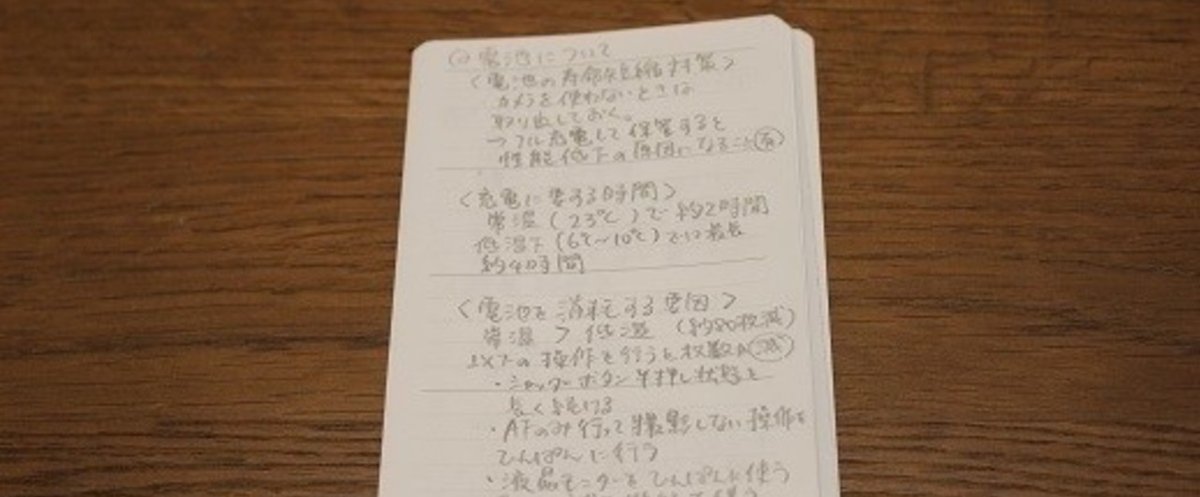 電池について
〈電池の寿命短縮対策〉
カメラを使わないときは
取り出しておく。
→フル充電して保管すると
性能低下の原因になること有
〈充電に要する時間〉
常温(23℃)で約2時間
低温下(6℃〜10℃)では最長
約4時間
〈電池を消耗する要因〉
常温 > 低温 (約80枚減)
以下の操作を行うと枚数が減
・シャッターボタン半押し状態を
長く続ける
・AFのみ行って撮影しない操作を
ひんぱんに行う
・液晶モニターをひんぱんに使う